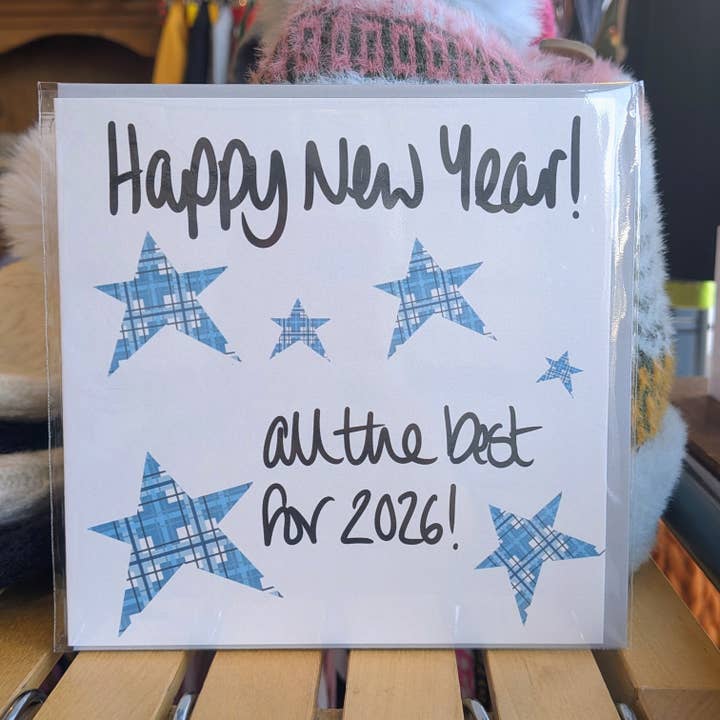 Happy New Year!
all the best
for 2026!